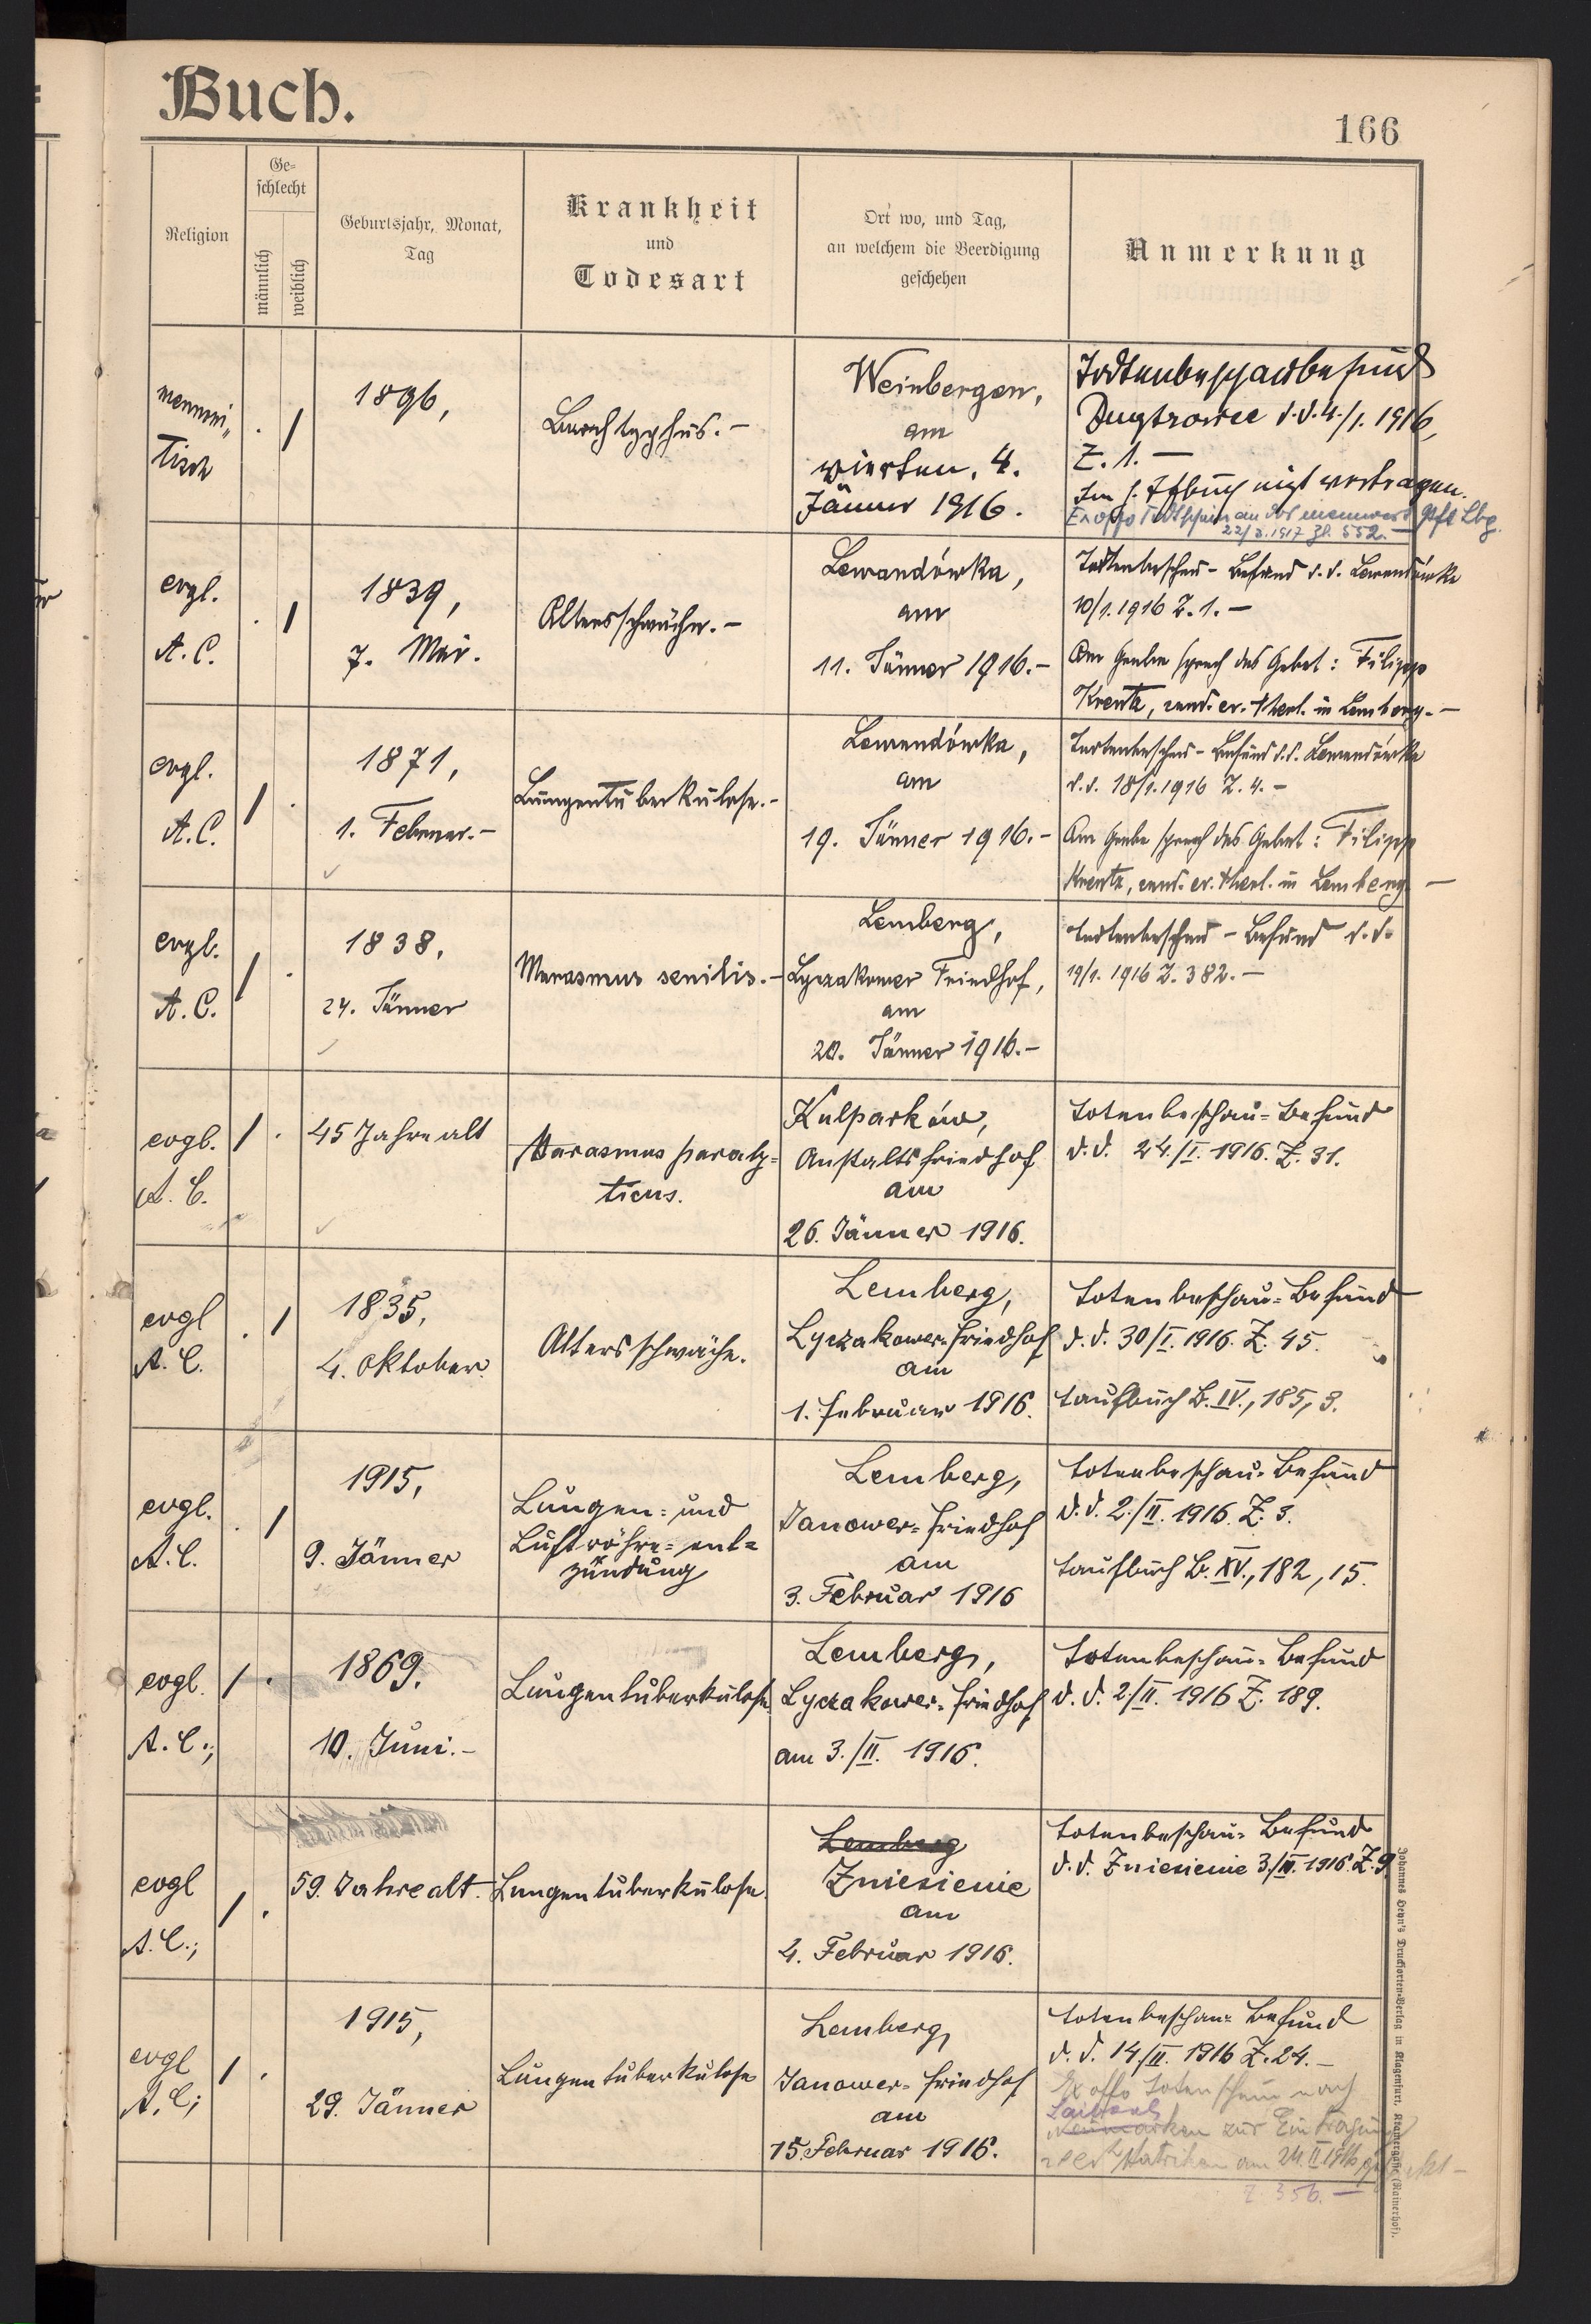 Buch.
166
Religion
Ge-
schlecht
männlich
weiblich
Geburtsjahr, Monat,
Tag
Krankheit
und
Todesart
Ort wo, und Tag,
an welchem die Beerdigung
geschehen
Anmerkung
mennni„
tisch
. /
1896,
Bauchtyphus. –
Weinbergen,
am
vierten, 4.
Jänner 1916.
Todtenbeschaubefund
d.d. 4./1. 1916,
Z. 1. –
Im nicht vortragen.
Ex offo Todtschein an das Lbg.
1917 Zl. 552. –
evgl.
A. C.
. /
1839,
7. Mai.
Altersschwäche. –
Lewandówka,
am
11. Jänner 1916. –
Todtenbeschau - Befund d. d. Lewandówka
10/1. 1916 Z. 1. –
Am Grabe sprach das Gebet: Filipp
Kreutz, cand. ev. theol. in Lemberg. –
evgl.
A. C.
/ .
1871,
1. Februar. –
Lungentuberkulose. –
Lewandówka,
am
19. Jänner 1916. –
Todtenbeschau - Befund d. d. Lewandówka
d. d. 18/1. 1916 Z. 4. –
Am Grabe sprach das Gebet: Filipp
Kreutz, cand. ev. theol. in Lemberg. –
evgl.
A. C.
/ .
1838,
24. Jänner
Marasmus senilis. –
Lemberg,
Lyczakower Friedhof,
am
20. Jänner 1916. –
Todtenbeschau - Befund d. d.
19/1. 1916 Z. 382. –
evgl.
A. C.
/ .
45 Jahre alt
Marasmus paraly-
ticus.
Kulparków,
Anstaltsfriedhof
am
26. Jänner 1916.
Totenbeschau - Befund
d. d. 24./I. 1916. Z. 31.
evgl
A. C.
. /
1835,
4. Oktober.
Altersschwäche.
Lemberg,
Lyczakower-Friedhof
am
1. Februar 1916.
Totenbeschau - Befund
d. d. 30/I. 1916. Z. 45.
Taufbuch B. IV., 185, 3.
evgl.
A. C.
. /
1915,
9. Jänner
Lungen- und
Luftröhre-ent-
zündung
Lemberg,
Janower-Friedhof
am
3. Februar 1916
Totenbeschau - Befund
d. d. 2./II. 1916. Z. 3.
Taufbuch B. XV., 182, 15.
evgl.
A. C.;
/ .
1869.
10. Juni. –
Lungentuberkulose.
Lemberg,
Lyczakower-Friedhof
am 3./II. 1916.
Totenbeschau - Befund
d. d. 2./II. 1916 Z. 189.
evgl
A. C.;
/ .
59. Jahre alt.
Lungentuberkulose.
Lemberg
Zniesienie
am
4. Februar 1916.
Totenbeschau - Befund
d. d. Zniesienie 3./II. 1916. Z. 9
evgl
A. C;
/ .
1915,
29. Jänner
Lungentuberkulose
Lemberg,
Janower-Friedhof
am
15. Februar 1916.
Totenbeschau - Befund
d. d. 14/II. 1916 Z. 24. –
Ex offo Totenschein nach
zur Eintragung
Matriken am 24. II 1916
Z. 356. –
Johannes Heyn's Drucksorten-Verlag in Klagenfurt, Kramergasse (Rainerhof).